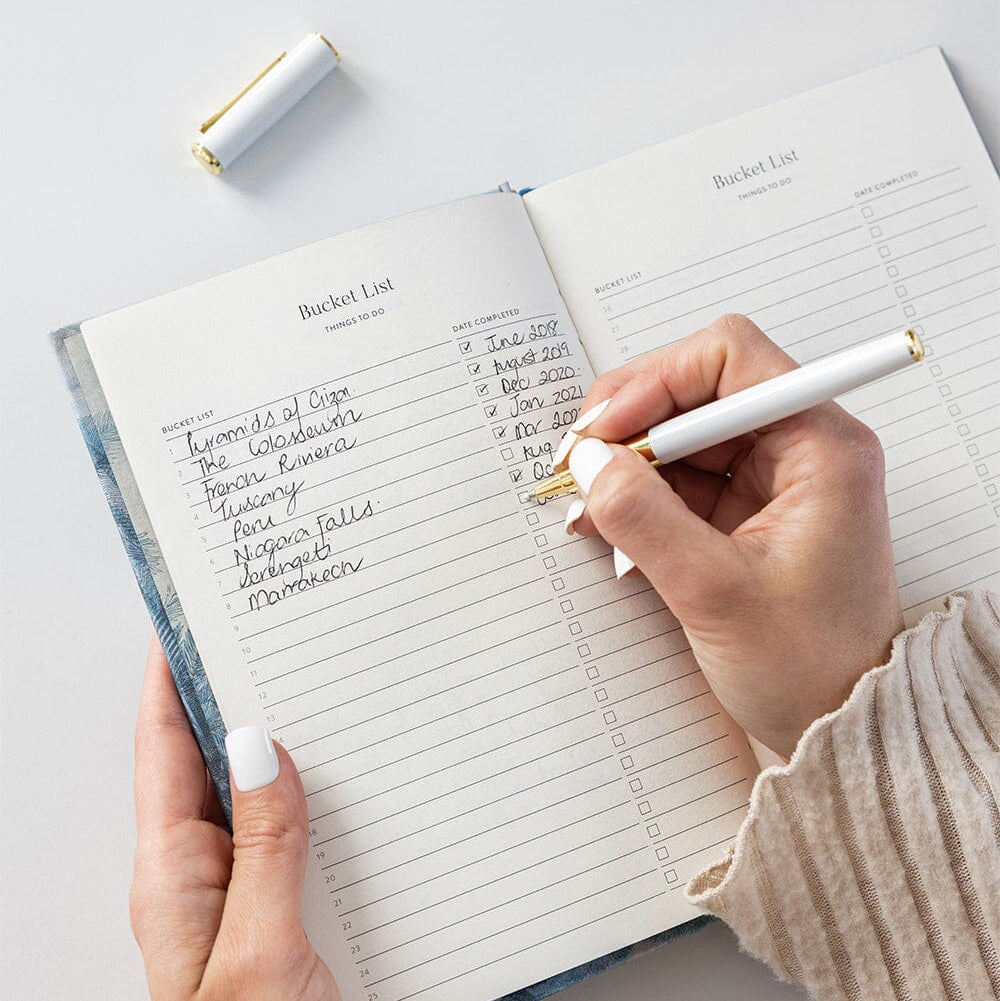 Bucket List
THINGS TO DO
BUCKET LIST DATE COMPLETED
1 Pyramids of Giza. June 2018
2 The Colosseum August 2019
3 French Riviera Dec 2020.
4 Tuscany Jan 2021
5 Peru Mar
6 Niagara Falls. Aug
7 Serengeti
8 Marrakech
9
10
11
12
13
18
19
20
21
22
23
24
25
Bucket List
THINGS TO DO
BUCKET LIST DATE COMPLETED
26
27
28